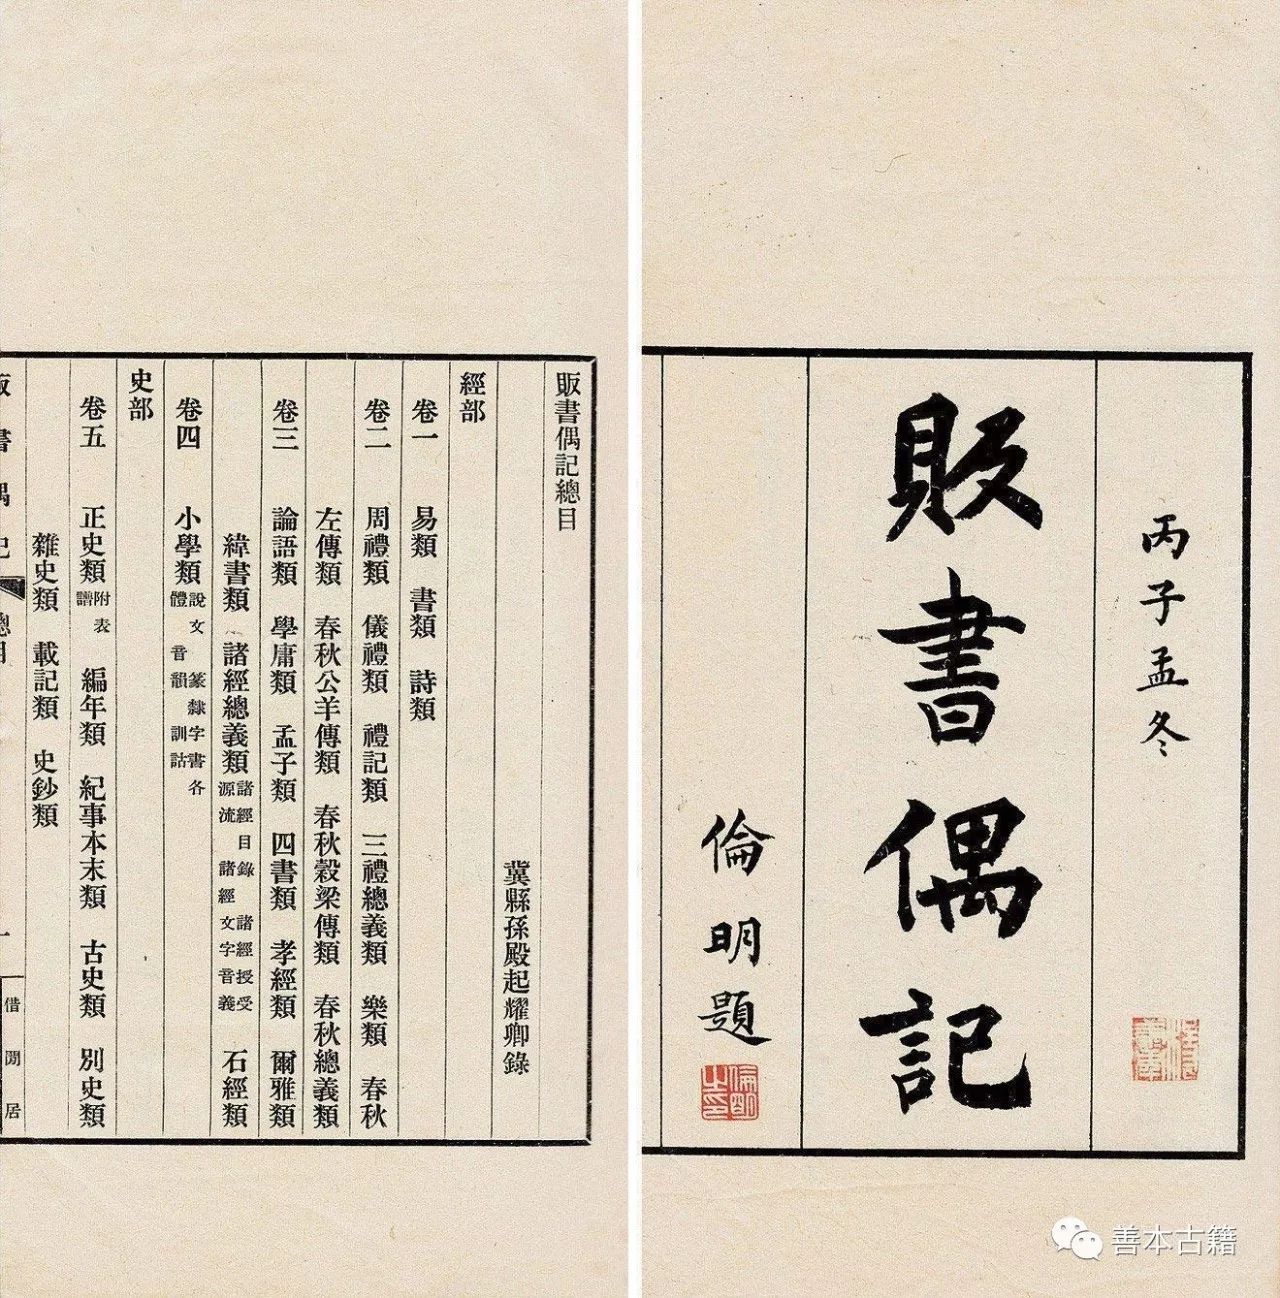 丙子孟冬
販書偶記
倫明題
倫明之印
販書偶記總目
冀縣孫殿起耀卿錄
經部
卷一　易類　書類　詩類
卷二　周禮類　儀禮類　禮記類　三禮總義類　樂類　春秋
左傳類　春秋公羊傳類　春秋穀梁傳類　春秋總義類
卷三　論語類　學庸類　孟子類　四書類　孝經類　爾雅類
緯書類　諸經總義類 諸經目錄　諸經授受源流　諸經文字音義　石經類
卷四　小學類 說文　篆隸字書各體　音韻　訓詁
史部
卷五　正史類 附表譜　編年類　紀事本末類　古史類　別史類
雜史類　載記類　史鈔類
販書偶記　總目　一　借閒居
善本古籍